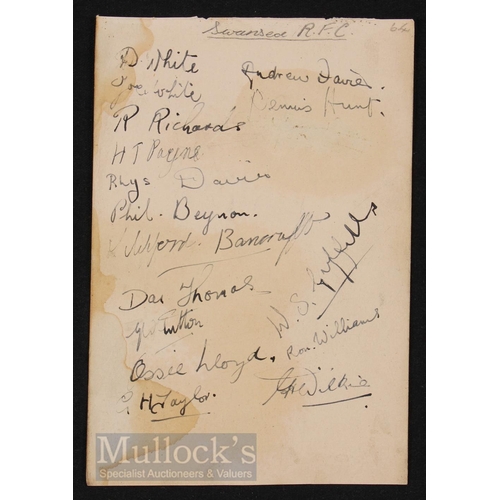 Swansea R.F.C.
D. White
Joe White
R Richards
H T Payne
Rhys Davies
Phil. Beynon.
Bancroft
Dai Thomas
Sutton
Ossie Lloyd.
G H Taylor.
Andrew Davies.
Dennis Hunt.
W. S.
Ron. Williams
Wilkie
Mullock's
Specialist Auctioneers & Valuers